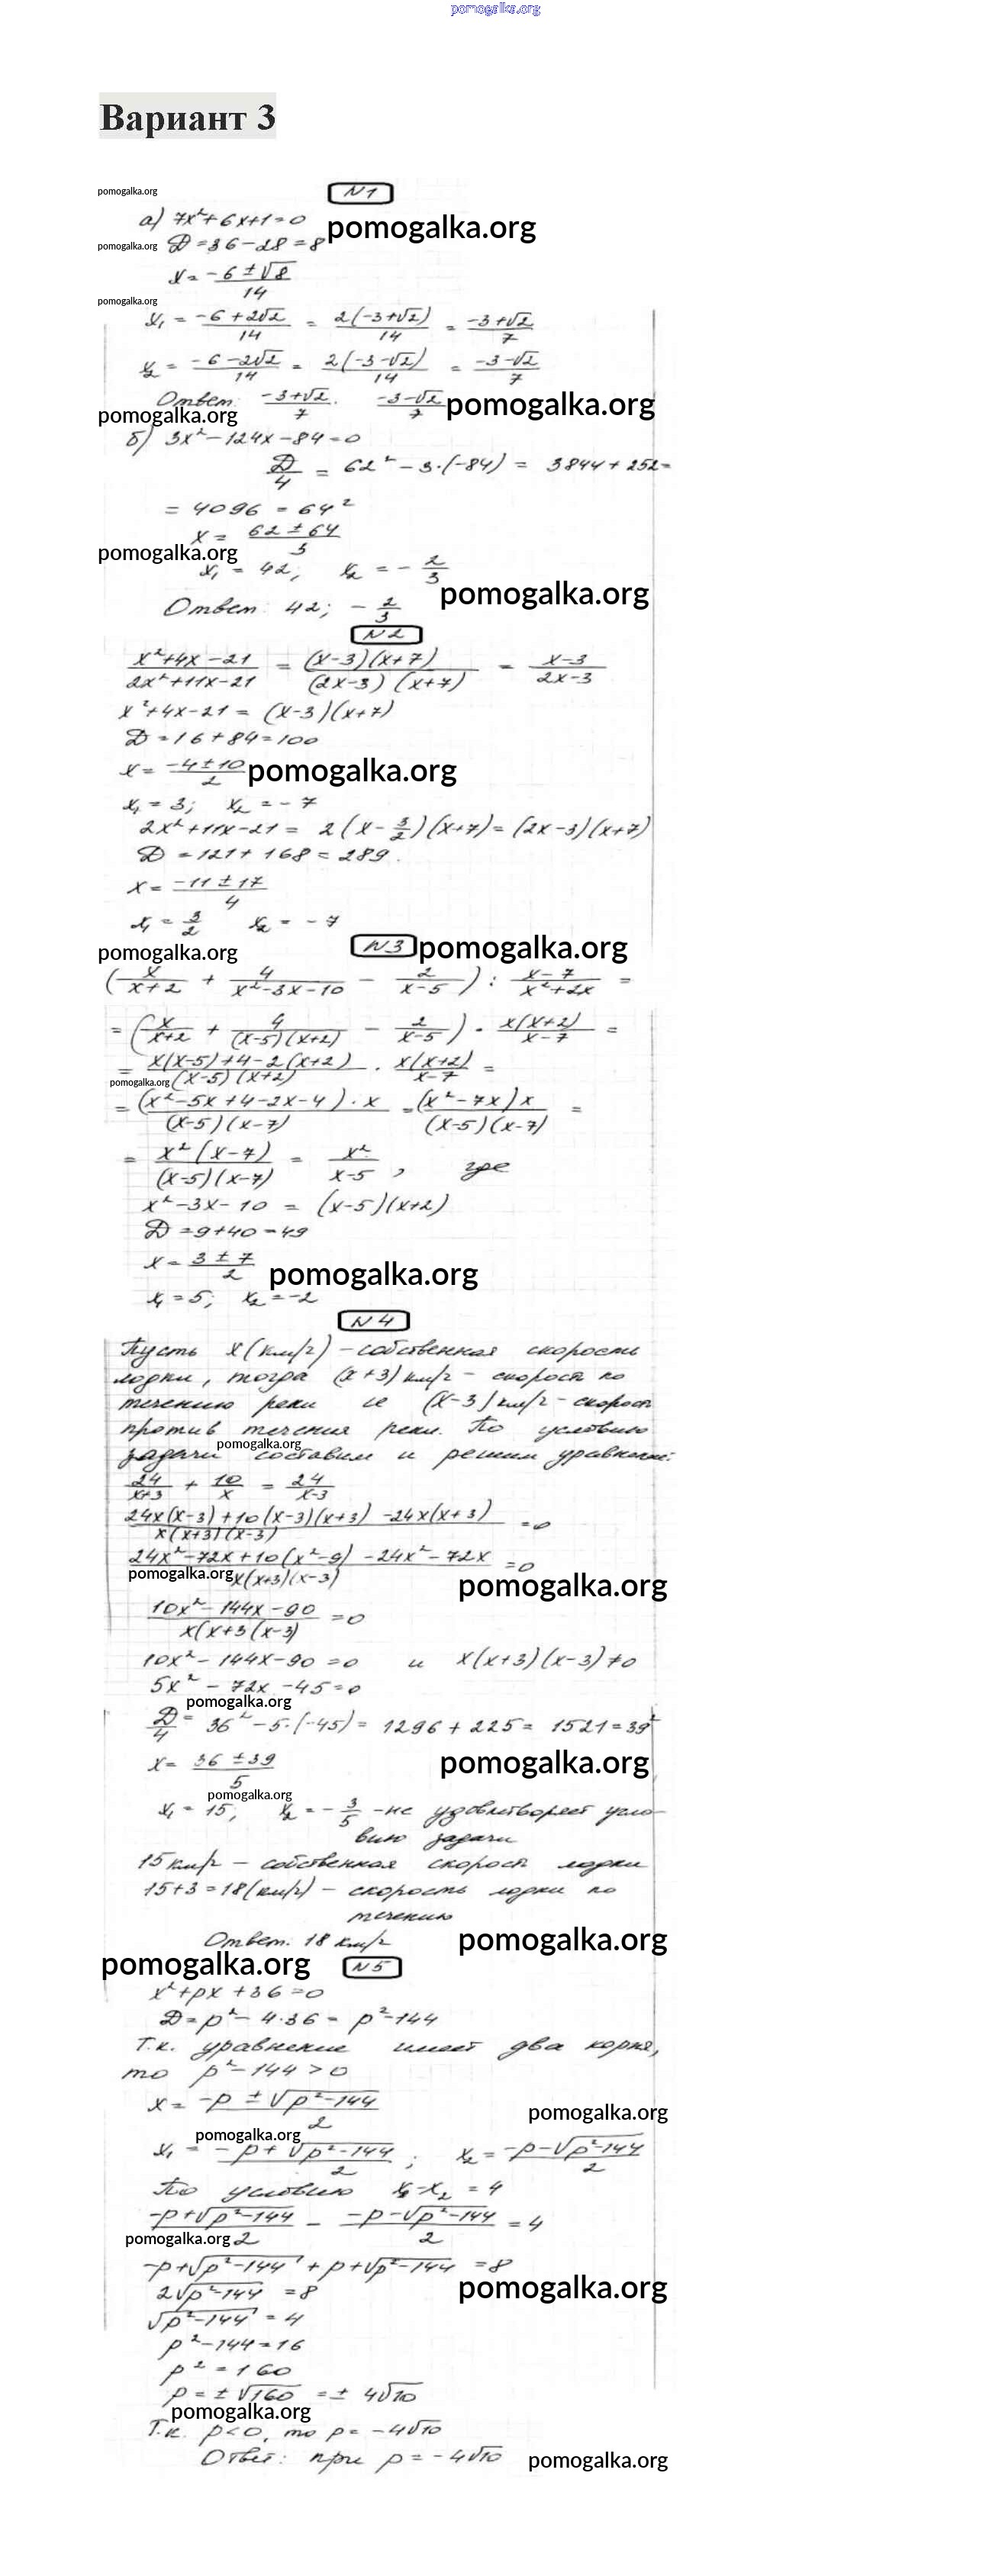 pomogalka.org
Вариант 3
pomogalka.org
N1
а) 7x²+6x+1=0 pomogalka.org
pomogalka.org D=36-28=8
x = (-6±√8)/14
pomogalka.org
x₁ = (-6+2√2)/14 = 2(-3+√2)/14 = (-3+√2)/7
x₂ = (-6-2√2)/14 = 2(-3-√2)/14 = (-3-√2)/7
Ответ: (-3+√2)/7. (-3-√2)/7 pomogalka.org
pomogalka.org
б) 3x²-124x-84=0
D/4 = 62²-3·(-84) = 3844+252=
= 4096 = 64²
x = (62±64)/3
pomogalka.org
x₁ = 42; x₂ = -2/3
pomogalka.org
Ответ: 42; -2/3
N2
(x²+4x-21)/(2x²+11x-21) = (x-3)(x+7)/(2x-3)(x+7) = (x-3)/(2x-3)
x²+4x-21 = (x-3)(x+7)
D=16+84=100
x = (-4±10)/2 pomogalka.org
x₁=3; x₂=-7
2x²+11x-21 = 2(x-3/2)(x+7)=(2x-3)(x+7)
D=121+168=289.
x = (-11±17)/4
x₁ = 3/2 x₂ = -7
pomogalka.org N3 pomogalka.org
(x/(x+2) + 4/(x²-3x-10) - 2/(x-5)) : (x-7)/(x²+2x) =
= (x/(x+2) + 4/((x-5)(x+2)) - 2/(x-5)) · x(x+2)/(x-7) =
= (x(x-5)+4-2(x+2))/((x-5)(x+2)) · x(x+2)/(x-7) =
pomogalka.org
= (x²-5x+4-2x-4)·x/((x-5)(x-7)) = (x²-7x)x/((x-5)(x-7)) =
= x²(x-7)/((x-5)(x-7)) = x²/(x-5), где
x²-3x-10 = (x-5)(x+2)
D=9+40=49
x = (3±7)/2
pomogalka.org
x₁=5; x₂=-2
N4
Пусть x(км/ч) - собственная скорость
лодки, тогда (x+3)км/ч - скорость по
течению реки и (x-3)км/ч - скорость
против течения реки. По условию
pomogalka.org
задачи составим и решим уравнение:
24/(x+3) + 10/x = 24/(x-3)
(24x(x-3)+10(x-3)(x+3)-24x(x+3))/(x(x+3)(x-3)) =0
(24x²-72x+10(x²-9)-24x²-72x)/(x(x+3)(x-3)) =0
pomogalka.org
pomogalka.org
(10x²-144x-90)/(x(x+3(x-3)) =0
10x²-144x-90=0 и x(x+3)(x-3)≠0
5x²-72x-45=0
pomogalka.org
D/4 = 36²-5·(-45) = 1296+225 = 1521=39²
x = (36±39)/5
pomogalka.org
pomogalka.org
x₁=15; x₂=-3/5 - не удовлетворяет усло-
вию задачи
15км/ч - собственная скорость лодки
15+3=18(км/ч) - скорость лодки по
течению
Ответ. 18 км/ч pomogalka.org
pomogalka.org N5
x²+px+36=0
D=p²-4·36=p²-144
Т.к. уравнение имеет два корня,
то p²-144>0
x = (-p±√(p²-144))/2
pomogalka.org
pomogalka.org
x₁ = (-p+√(p²-144))/2; x₂ = (-p-√(p²-144))/2
По условию x₁-x₂=4
(-p+√(p²-144))/2 - (-p-√(p²-144))/2 = 4
pomogalka.org
-p+√(p²-144)+p+√(p²-144) =8
pomogalka.org
2√(p²-144) =8
√(p²-144) =4
p²-144=16
p²=160
p=±√160 =± 4√10
pomogalka.org
Т.к. p<0, то p=-4√10
Ответ: при p=-4√10 pomogalka.org